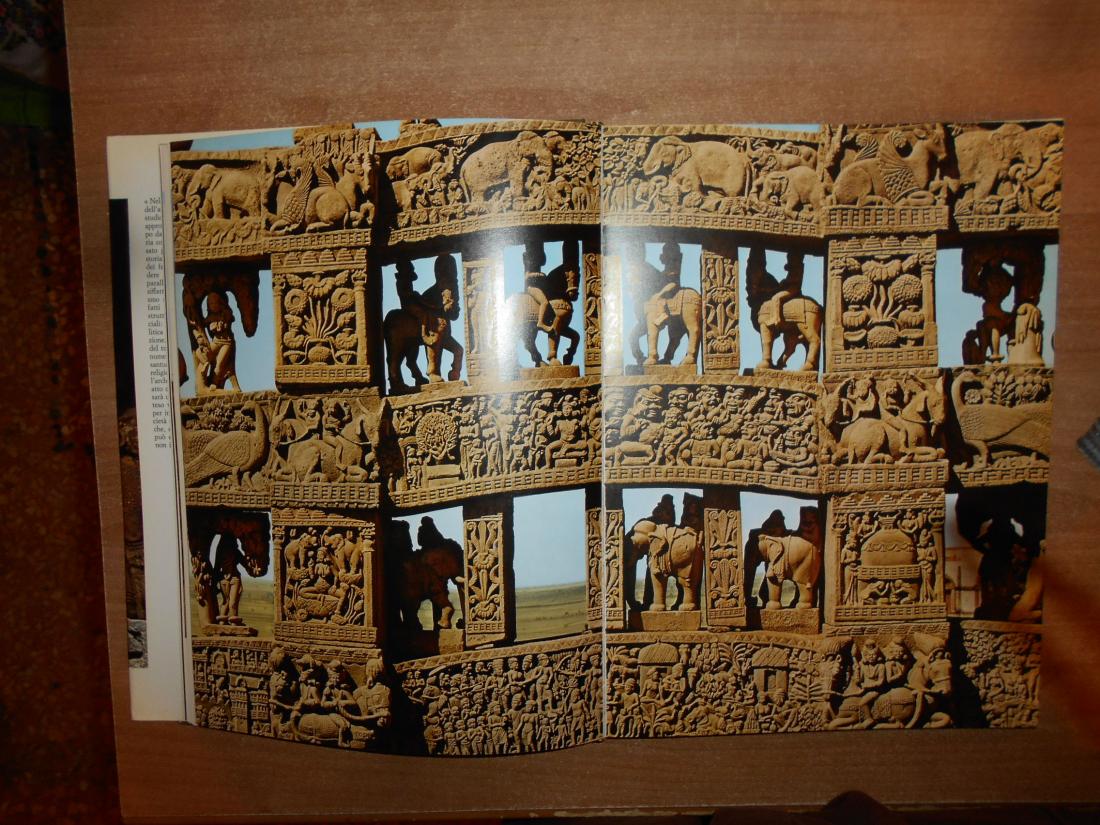 « Nel
dell'a
studi
appro
po da
ria su
sato
storia
dei f
dere
parall
siffat
uno
fatti
strutt
ciali
litica
zione.
del te
nume
santu
religi
l'arch
atto
sarà
teso
per i
cietà
che,
può
non